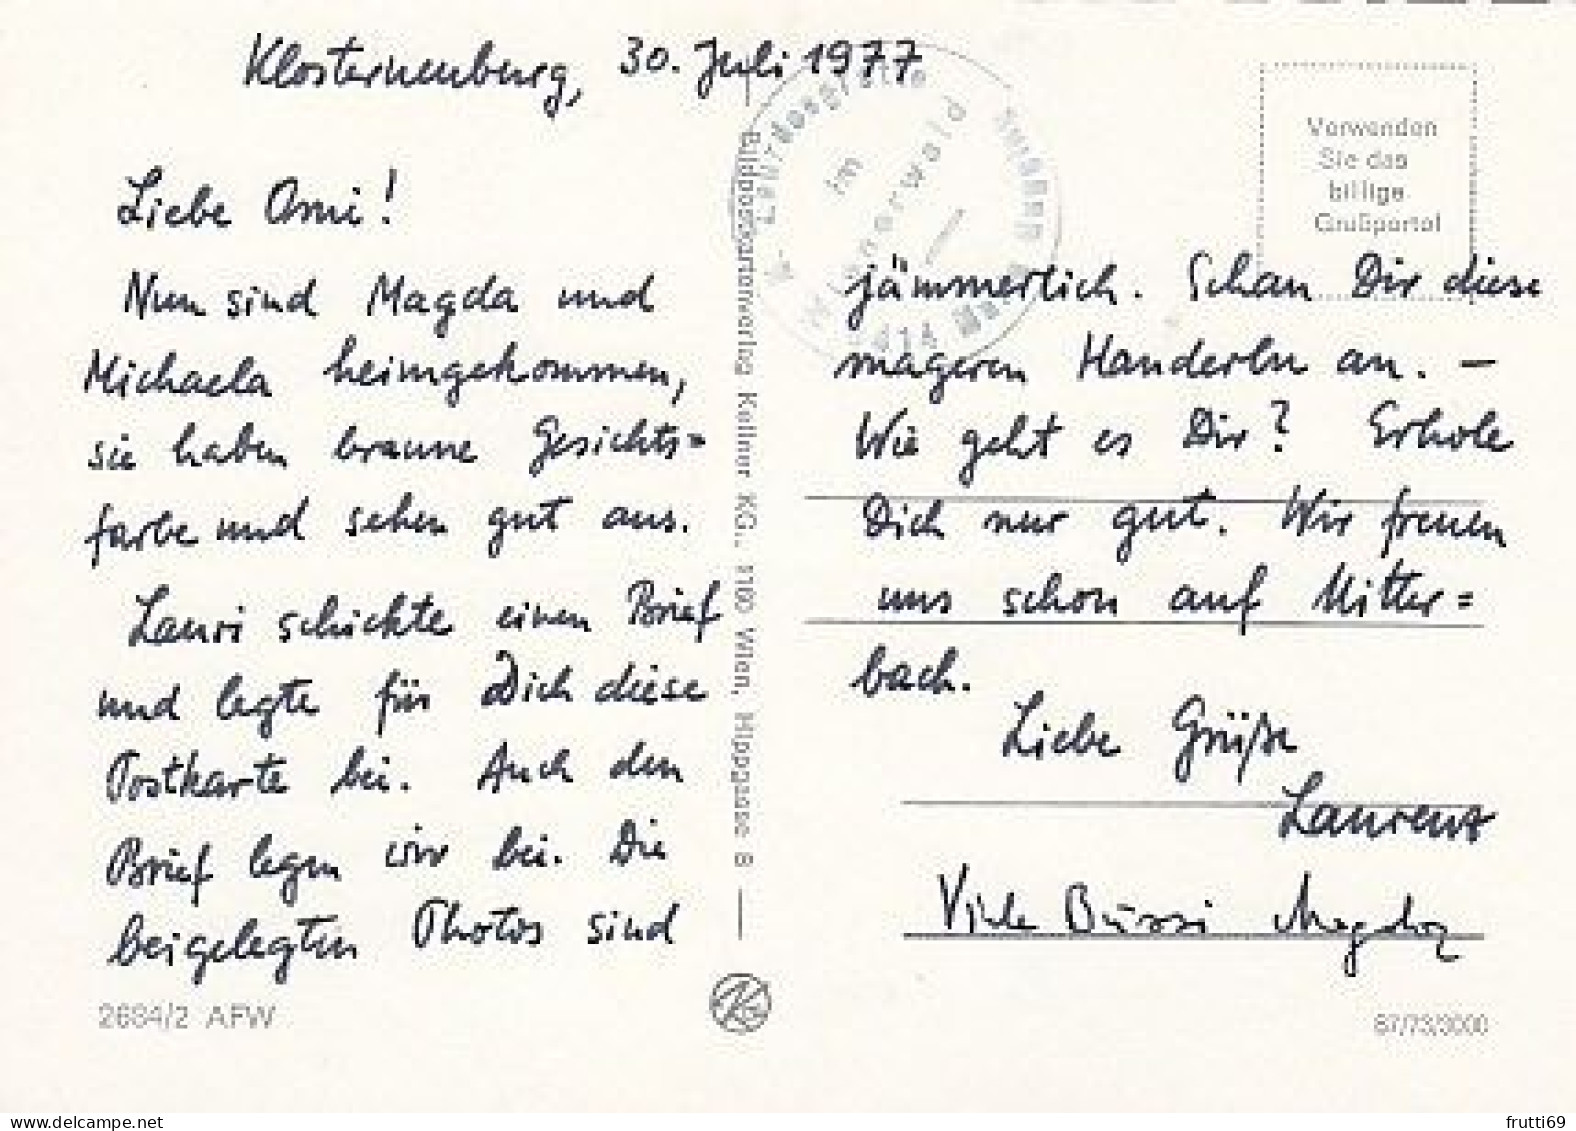 Klosterneuburg, 30. Juli 1977
Liebe Omi!
Nun sind Magda und
Michaela heimgekommen,
sie haben braune Gesichts=
farbe und sehen gut aus.
Lauri schickte einen Brief
und legte für Dich diese
Postkarte bei. Auch den
Brief legen wir bei. Die
beigelegten Photos sind
jämmerlich. Schau Dir diese
mageren Handerln an. –
Wie geht es Dir? Erhole
Dich nur gut. Wir freuen
uns schon auf Mitter=
bach.
Liebe Grüße
Laurenz
Viele Bussi Magda
Verwenden
Sie das
billige
Grußporto!
Lourdesgrotte
im
Wienerwald
Bildpostkartenverlag Kellner KG., 1100 Wien, Hippgasse 8
2684/2 AFW
KG
67/73/3000
frutti69